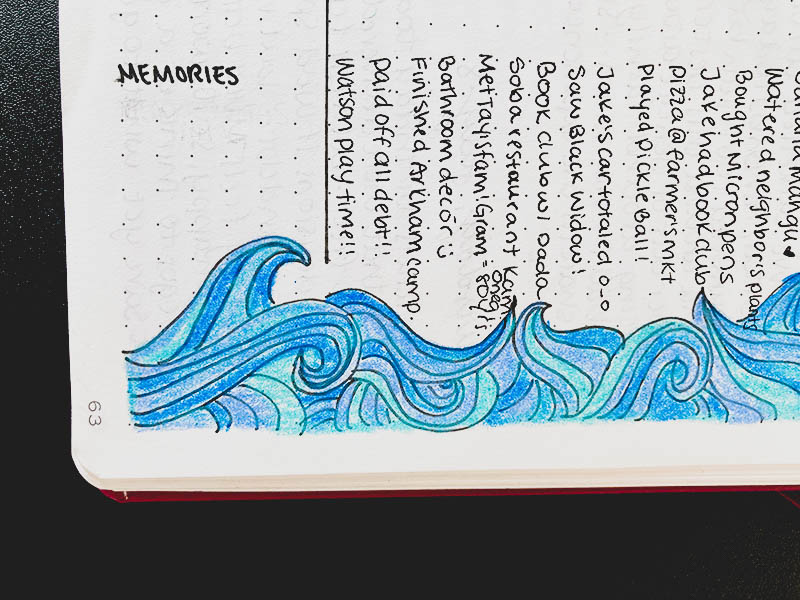 MEMORIES
mangu ♥
Watered neighbor's plants
Bought Micron pens
Jake had book club
Pizza @ farmer's mkt
Played pickle Ball!
Jake's car totaled o_o
Saw Black Widow!
Book club w/ Dada
Soba restaurant
Met Tay's fam! Gram = 80 yrs.
Bathroom decor ü
Finished Arkham camp.
Paid off all debt!!
Watson play time!!
63